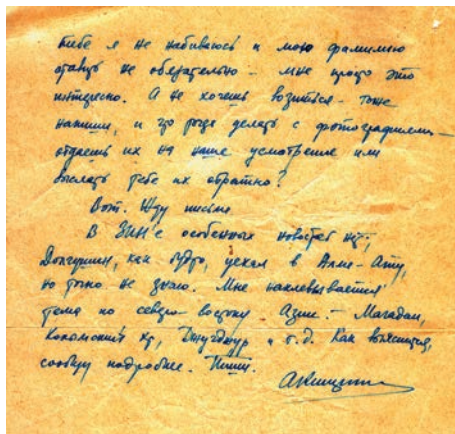 тебе я не набиваюсь и мою фамилию
ставить не обязательно – мне просто это
интересно. А не хочешь возиться – тоже
напиши, и что тогда делать с фотографиями –
отдаешь их на наше усмотрение или
выслать тебе их обратно?
Вот. Жду письма
В ЗИН'е особенных новостей нет,
Долгушин, как будто, уехал в Алма-Ату,
но точно не знаю. Мне наклевывается
тема по северо-востоку Азии. – Магадан,
Колымский хр., Джугджур и т.д. Как выяснится,
сообщу подробнее. Пиши.